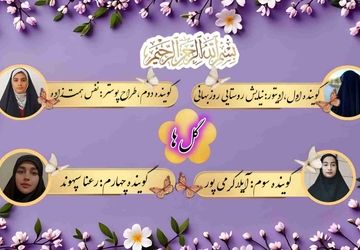 بسم الله الرحمن الرحیم
گوینده اول، ادیتور: نیایش روستایی روزبهانی
گوینده دوم، طراح پوستر: نفس همت زاده
گل ها
گوینده سوم: آیلا کرمی پور
گوینده چهارم: رعنا سپهوند